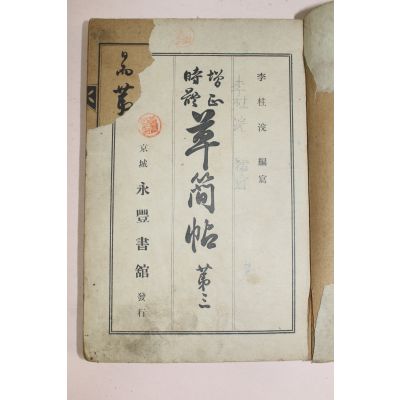 李柱浣 編寫
增正
時體
草簡帖 第三
京城 永豐書館 發行